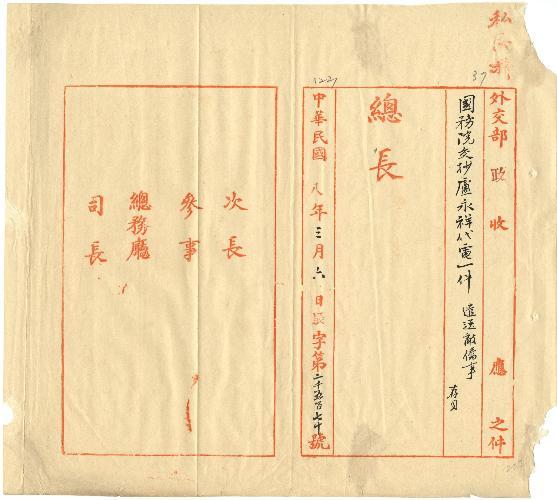 37
外交部 政 收 應 之件
國務院交抄盧永祥代電一件 遣送敵僑事 存
總長
1227
中華民國八年三月六日 字第二千五百七十號
次長
參事
總務廳
司長